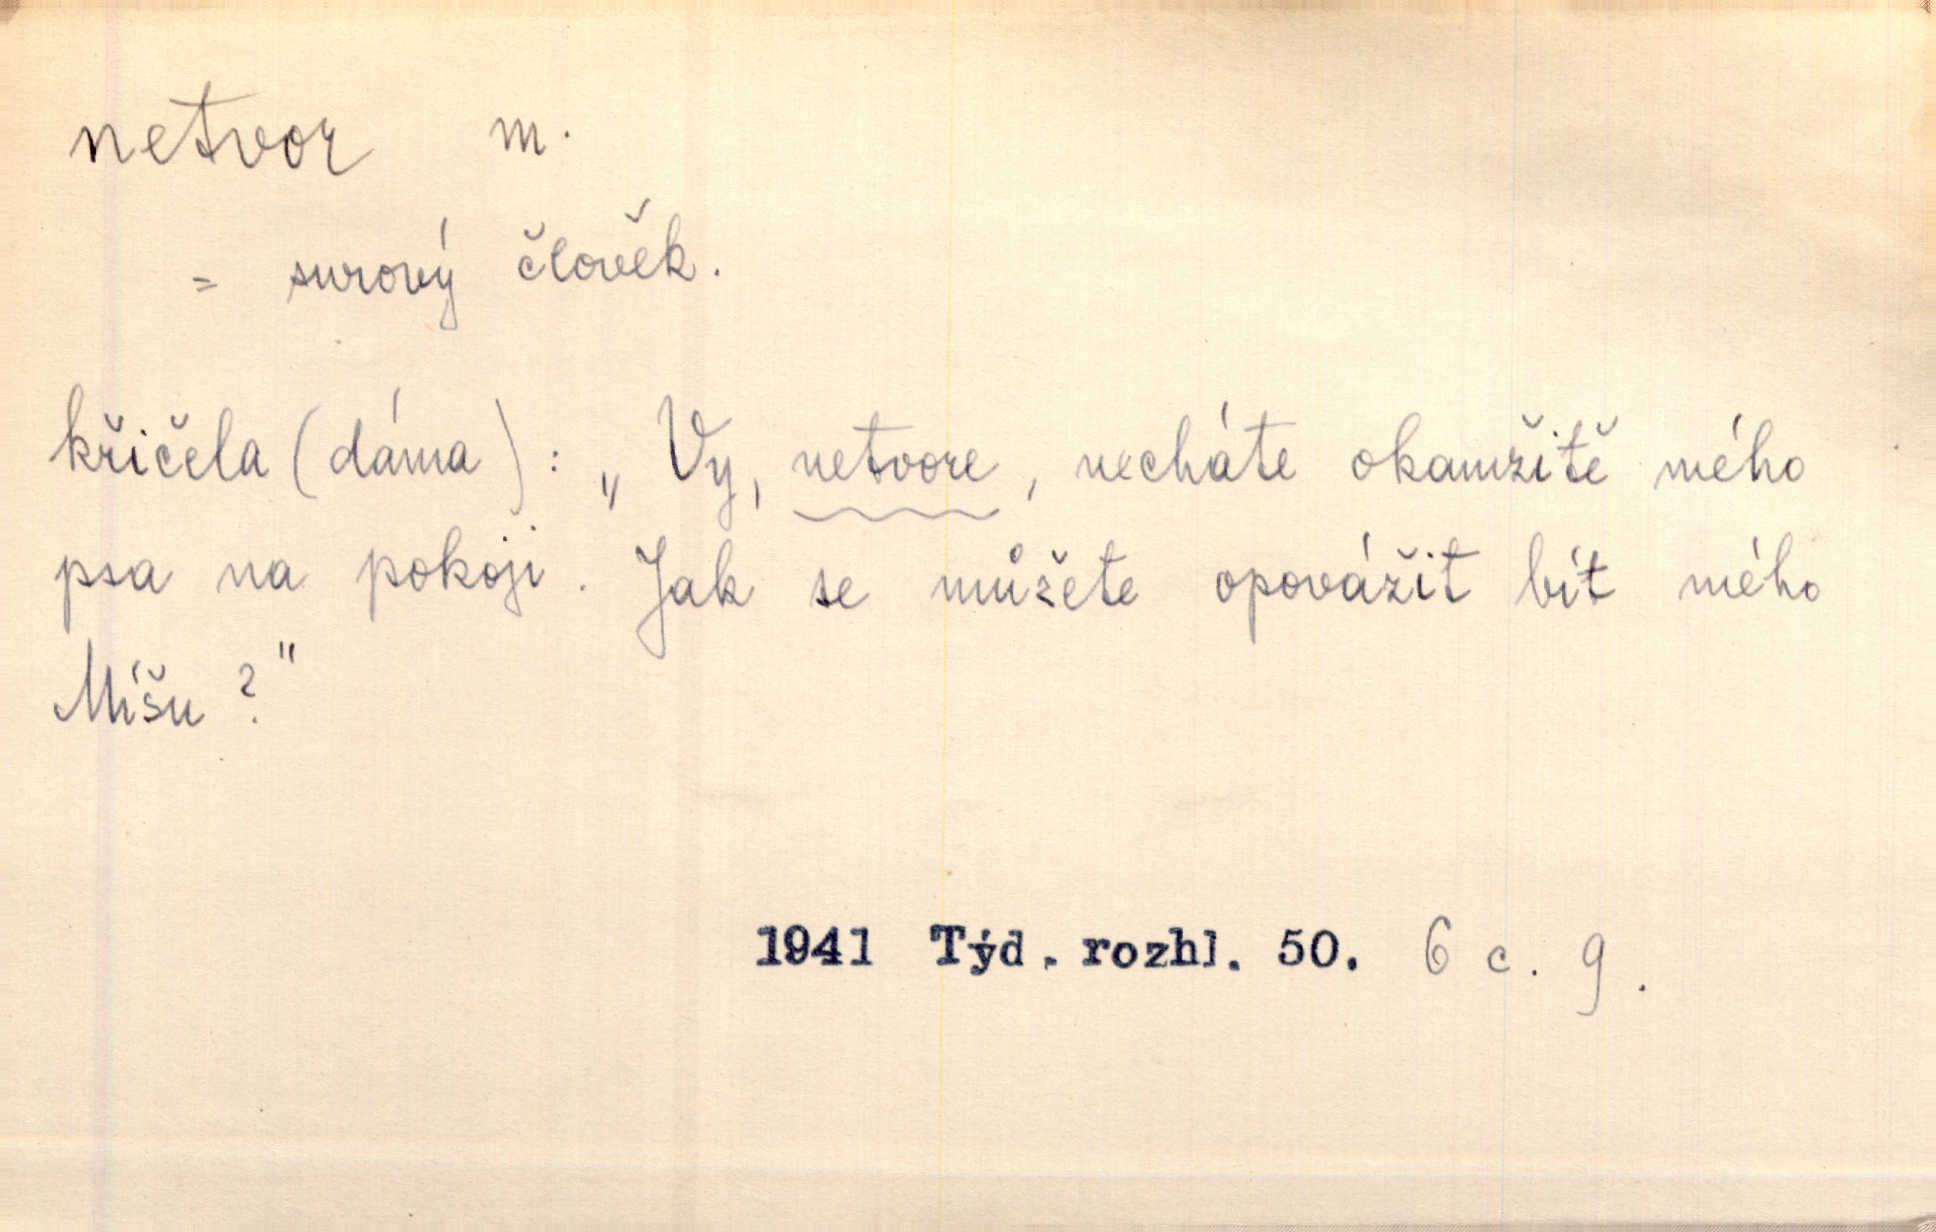 netvor m.
= surový člověk.
křičela (dáma): „Vy, netvore, necháte okamžitě mého
psa na pokoji. Jak se můžete opovážit bít mého
Míšu?"
1941 Týd. rozhl. 50. 6 c. 9.